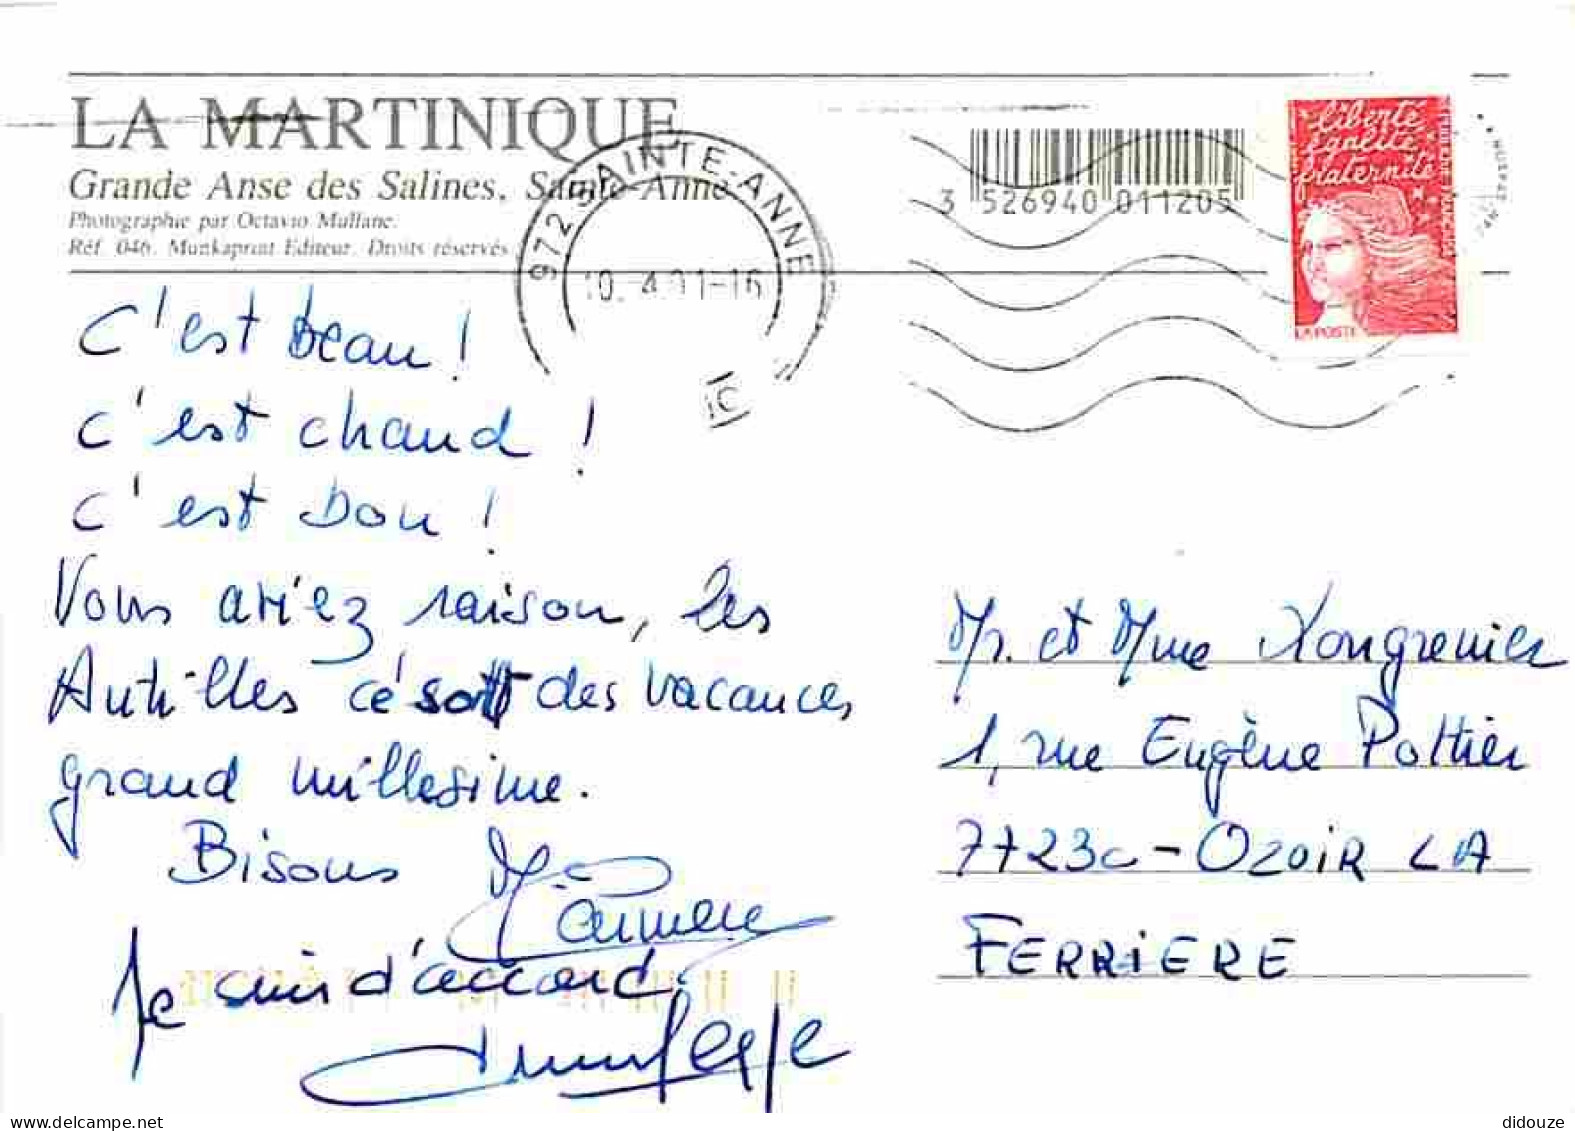 LA MARTINIQUE
Grande Anse des Salines. Sainte-Anne
Photographie par Octavio Mullane.
Réf. 046. Munkaprint Editeur. Droits réservés
972 SAINTE-ANNE
10. 4.01-16
3 526940 011205
liberté
égalité
fraternité
RÉPUBLIQUE FRANÇAISE
LA POSTE
C'est beau !
C'est chaud !
C'est bon !
Vous aviez raison, les
Antilles ce sont des vacances
grand millesime.
Bisous
Je suis d'accord
Mr. et Mme Longrenier
1, rue Eugène Pottier
77230 - OZOIR LA
FERRIERE
didouze